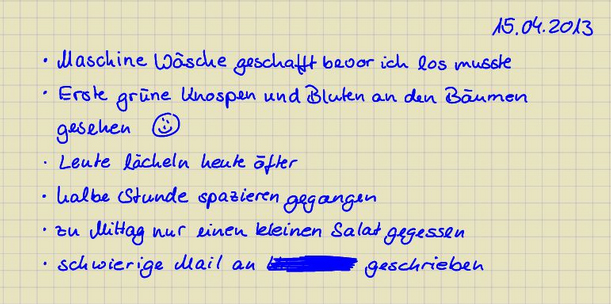 15.04.2013
· Maschine Wäsche geschafft bevor ich los musste
· Erste grüne Knospen und Blüten an den Bäumen
gesehen ☺
· Leute lächeln heute öfter
· halbe Stunde spazieren gegangen
· zu Mittag nur einen kleinen Salat gegessen
· schwierige Mail an geschrieben